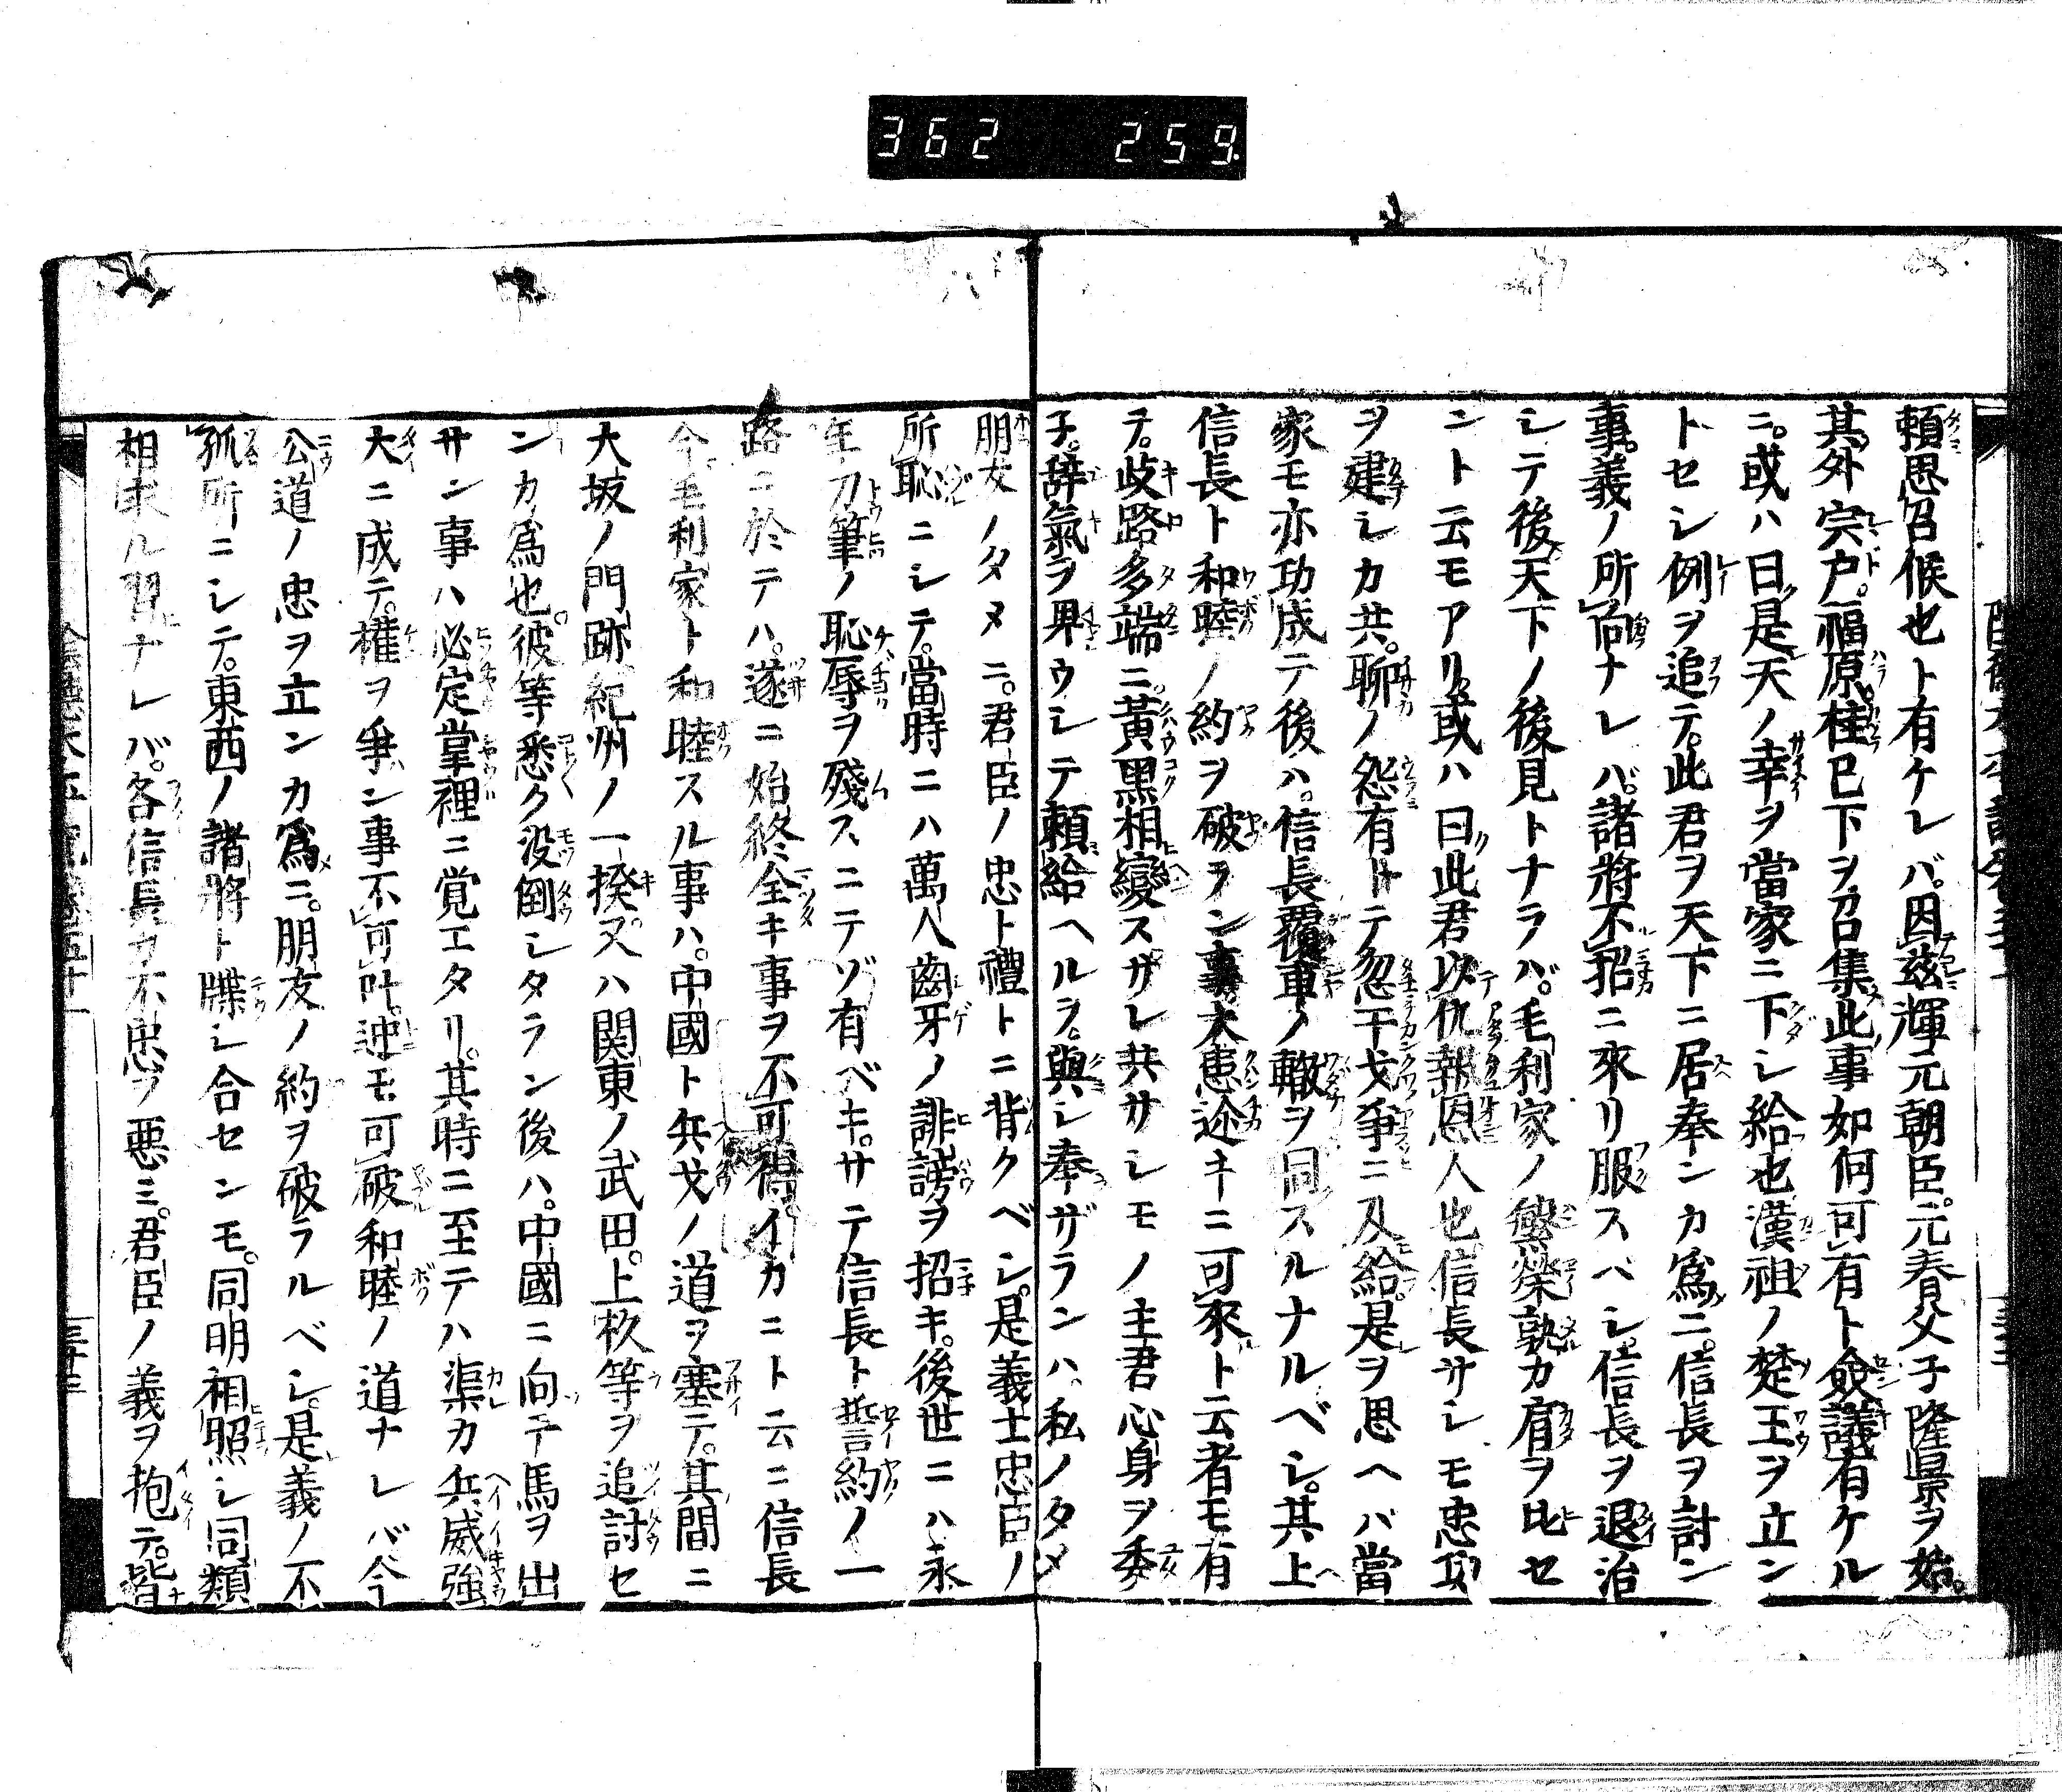 362 259
頼思召候也ト有ケレバ。因茲輝元朝臣。元春父子隆景ヲ始。
其外宍戸。福原。桂已下ヲ召集此事如何可有ト僉議有ケル
ニ。或ハ曰是天ノ幸ヲ當家ニ下シ給也漢祖ノ楚王ヲ立ン
トセシ例ヲ追テ。此君ヲ天下ニ居奉ンカ爲ニ。信長ヲ討ン
事。義ノ所向ナレバ。諸將不招ニ來リ服スベシ。信長ヲ退治
シテ後天下ノ後見トナラハ。毛利家ノ繁榮孰カ肩ヲ比セ
ントニ云モアリ。或ハ曰此君以仇報恩人也信長サシモ忠功
ヲ建シカ共。聊ノ怨有トテ忽干戈爭ニ及給。是ヲ思ヘバ當
家モ亦功成テ後ハ。信長覆車ノ轍ヲ同スルナルベシ。其上
信長ト和睦ノ約ヲ破ラン事大患迩キニ可來ト云者モ有
テ。歧路多端ニ。黃黑相變スザレ共サシモノ主君心身ヲ委
子。辞氣ヲ卑ウシテ頼給ヘルヲ。與シ奉ザランハ。私ノタメ
朋友ノタメニ。君臣ノ忠ト禮トニ背クベシ。是義士忠臣ノ
所恥ニシテ。當時ニハ萬人齒牙ノ誹謗ヲ招キ。後世ニハ永
年刀筆ノ恥辱ヲ殘スニテゾ有ベキ。サテ信長ト誓約ノ一
路ニ於テハ。遂ニ始終全キ事ヲ不可得。イカニト云ニ信長
今毛利家ト和睦スル事ハ。中國ト兵戈ノ道ヲ塞テ。其間ニ
大坂ノ門跡紀州ノ一揆又ハ関東ノ武田。上杦等ヲ追討セ
ンカ爲也。彼等悉ク没倒シタラン後ハ。中國ニ向テ馬ヲ出
サン事ハ必定掌裡ニ覚エタリ。其時ニ至テハ渠カ兵威強
大ニ成テ。權ヲ爭ン事不可叶。迚モ可破和睦ノ道ナレバ今
公道ノ忠ヲ立ンカ爲ニ。朋友ノ約ヲ破ラルベシ。是義ノ不
孤所ニシテ。東西ノ諸將ト牒シ合センモ。同明相照シ同類
相求ル習ナレバ。各信長カ不忠ヲ悪ミ。君臣ノ義ヲ抱テ。皆